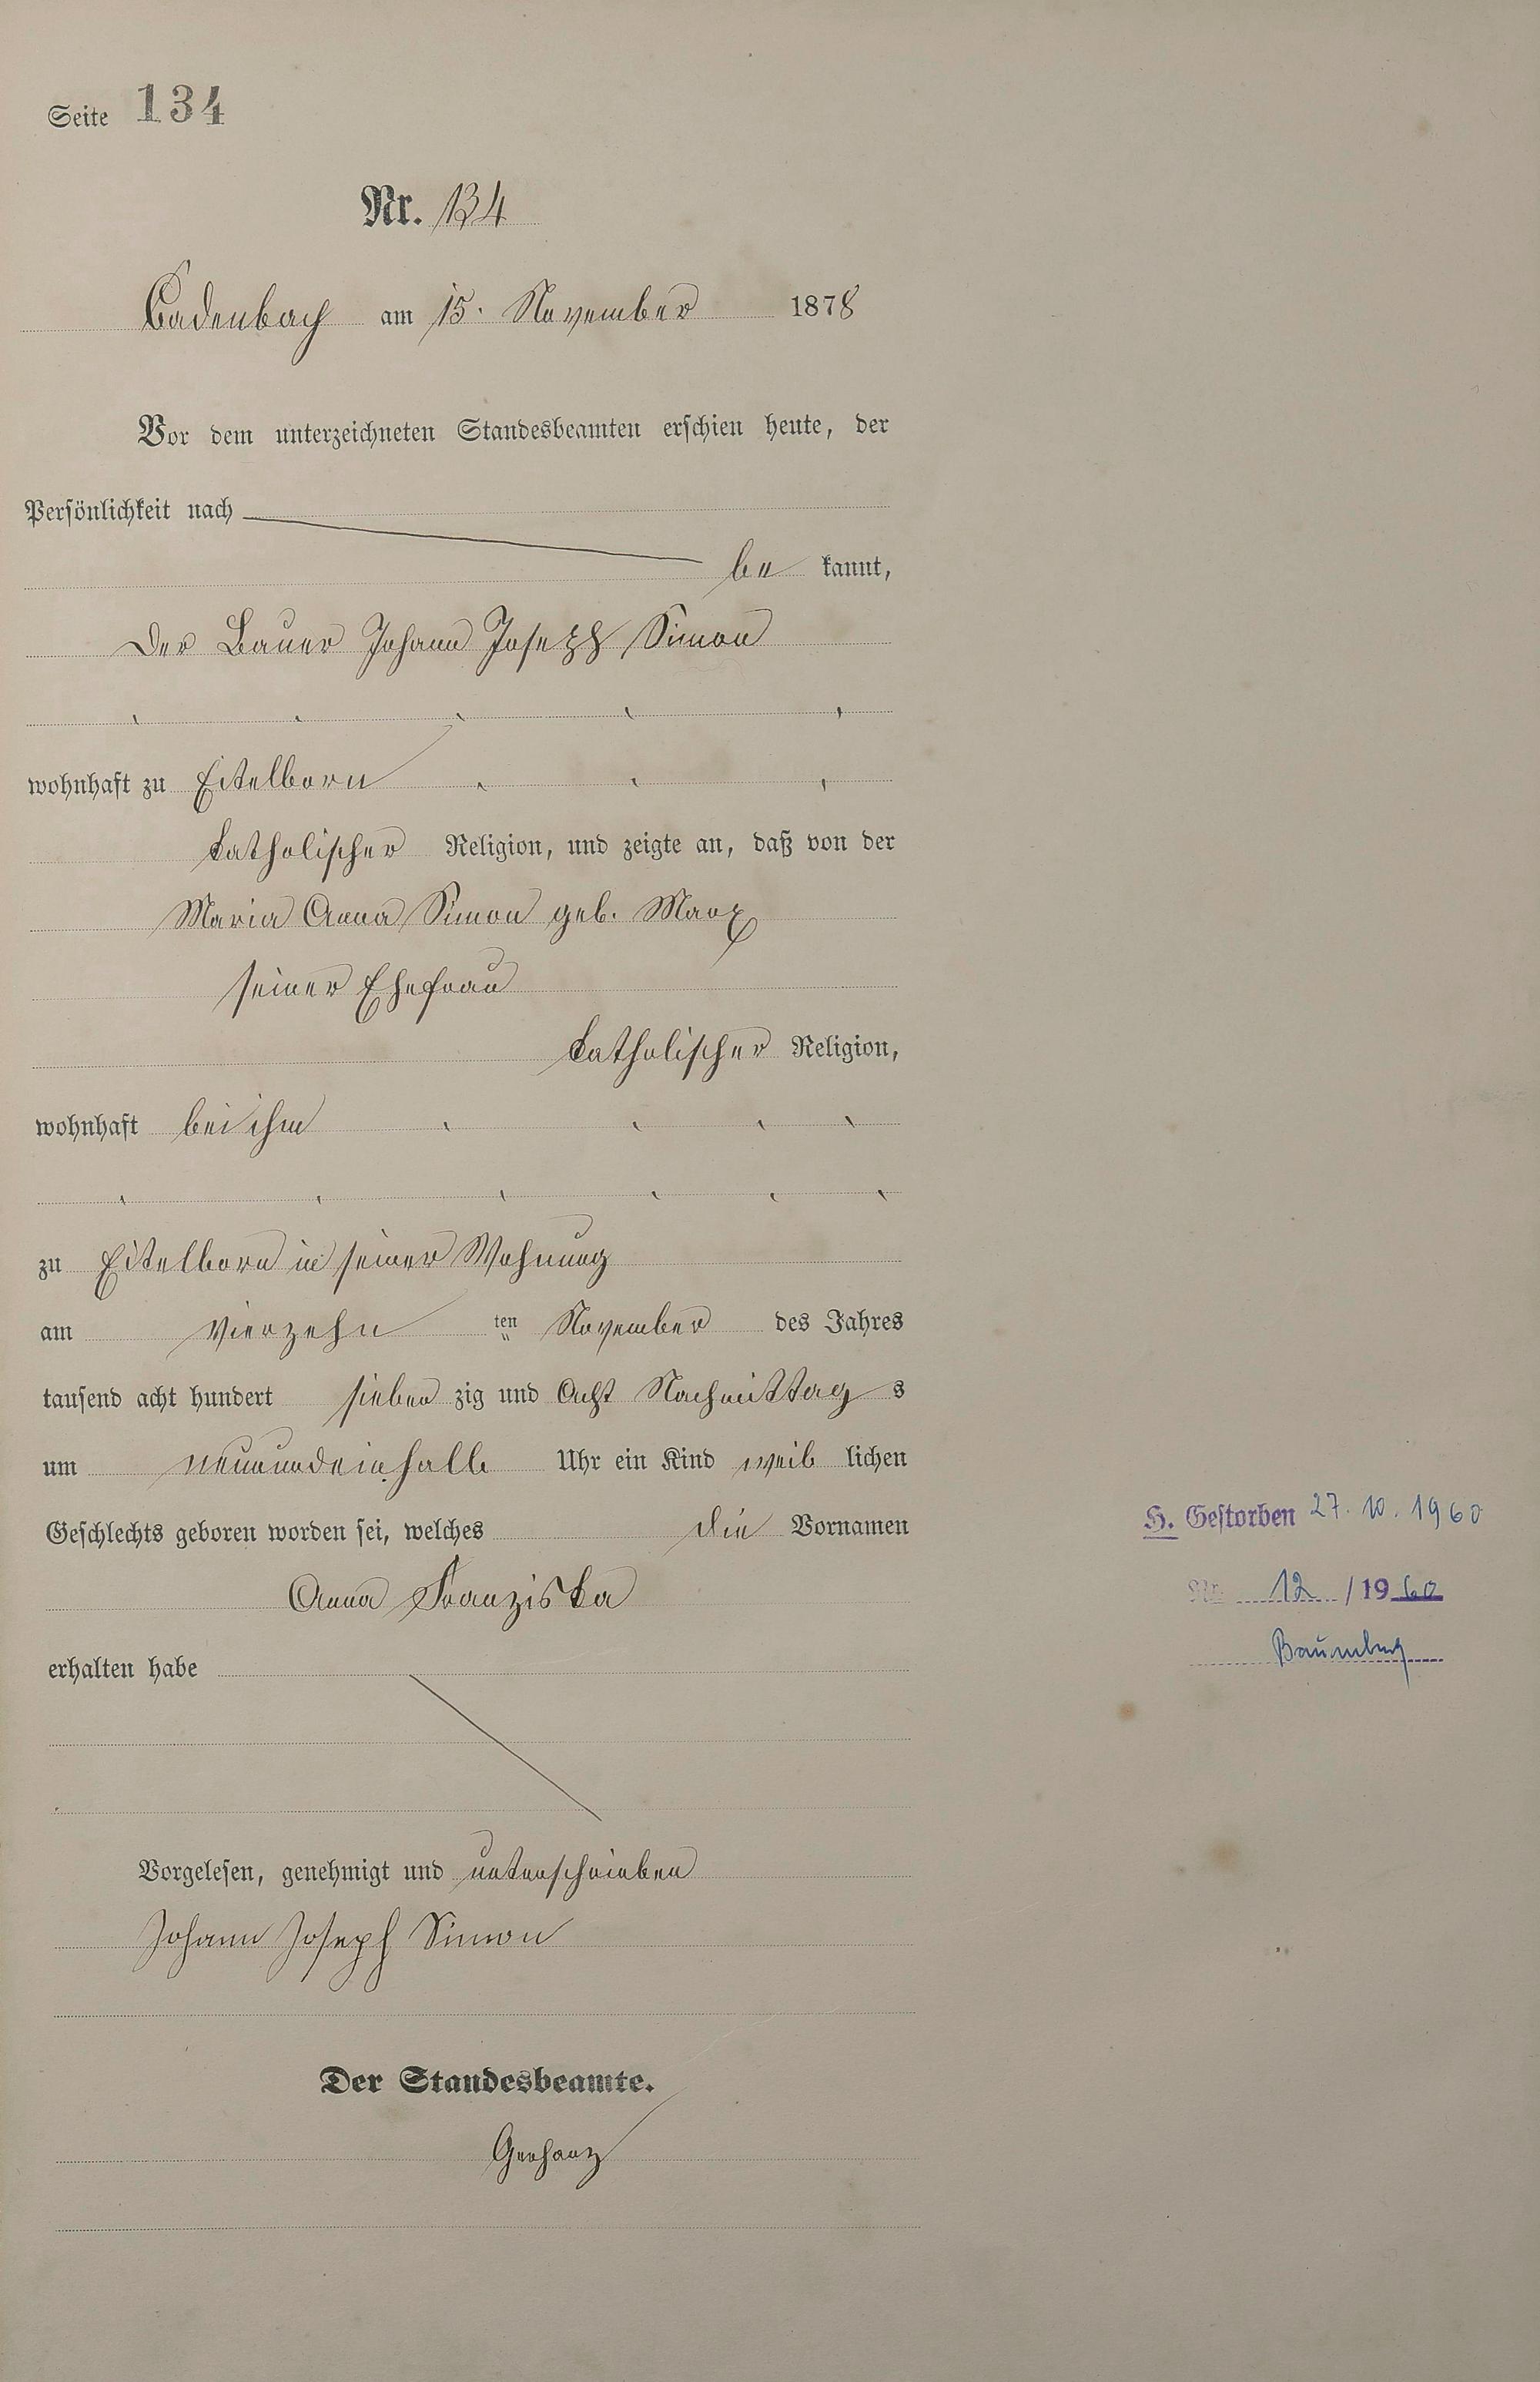 Seite 134
Nr. 134
Cadenbach am 15. November 1878
Vor dem unterzeichneten Standesbeamten erschien heute, der
Persönlichkeit nach
be kannt,
der Bauer Johann Joseph Simon
wohnhaft zu Eitelborn
katholischer Religion, und zeigte an, daß von der
Maria Anna Simon geb. Marx
seiner Ehefrau
katholischer Religion,
wohnhaft bei ihm
zu Eitelborn in seiner Wohnung
am vierzehn ten November des Jahres
tausend acht hundert sieben zig und Acht Nachmittag s
um neunundeinhalb Uhr ein Kind weib lichen
Geschlechts geboren worden sei, welches die Vornamen
Anna Franziska
erhalten habe
Vorgelesen, genehmigt und unterschrieben
Johann Joseph Simon
Der Standesbeamte.
Gerharz
H. Gestorben 27. 10. 1960
Nr. 12 / 1960